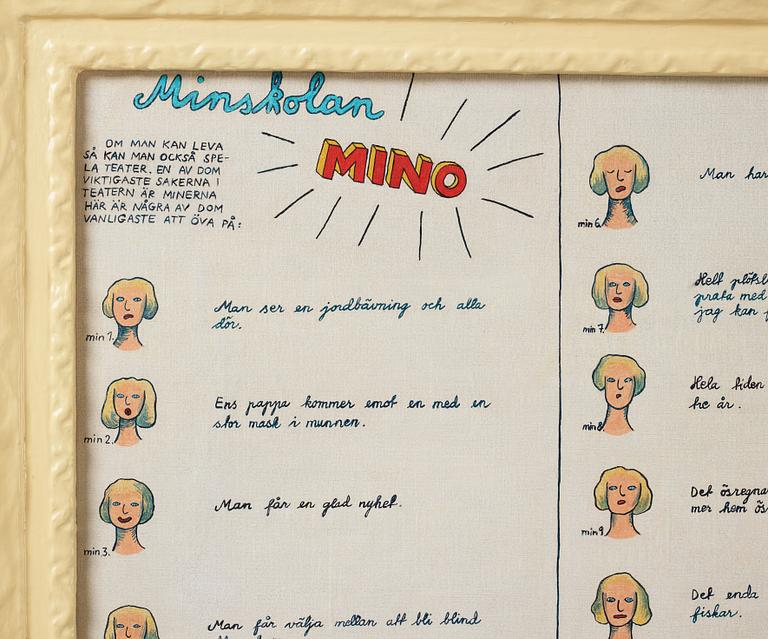 Minskolan
MINO
OM MAN KAN LEVA
SÅ KAN MAN OCKSÅ SPE-
LA TEATER. EN AV DOM
VIKTIGASTE SAKERNA I
TEATERN ÄR MINERNA
HÄR ÄR NÅGRA AV DOM
VANLIGASTE ATT ÖVA PÅ:
min 1.
Man ser en jordbävning och alla
dör.
min 2.
Ens pappa kommer emot en med en
stor mask i munnen.
min 3.
Man får en glad nyhet.
Man får välja mellan att bli blind
min 6.
Man har
min 7.
Helt plötsl
prata med
jag kan
min 8.
Hela tiden
tre år.
min 9.
Det ösregna
mer hem ös
Det enda
fiskar.